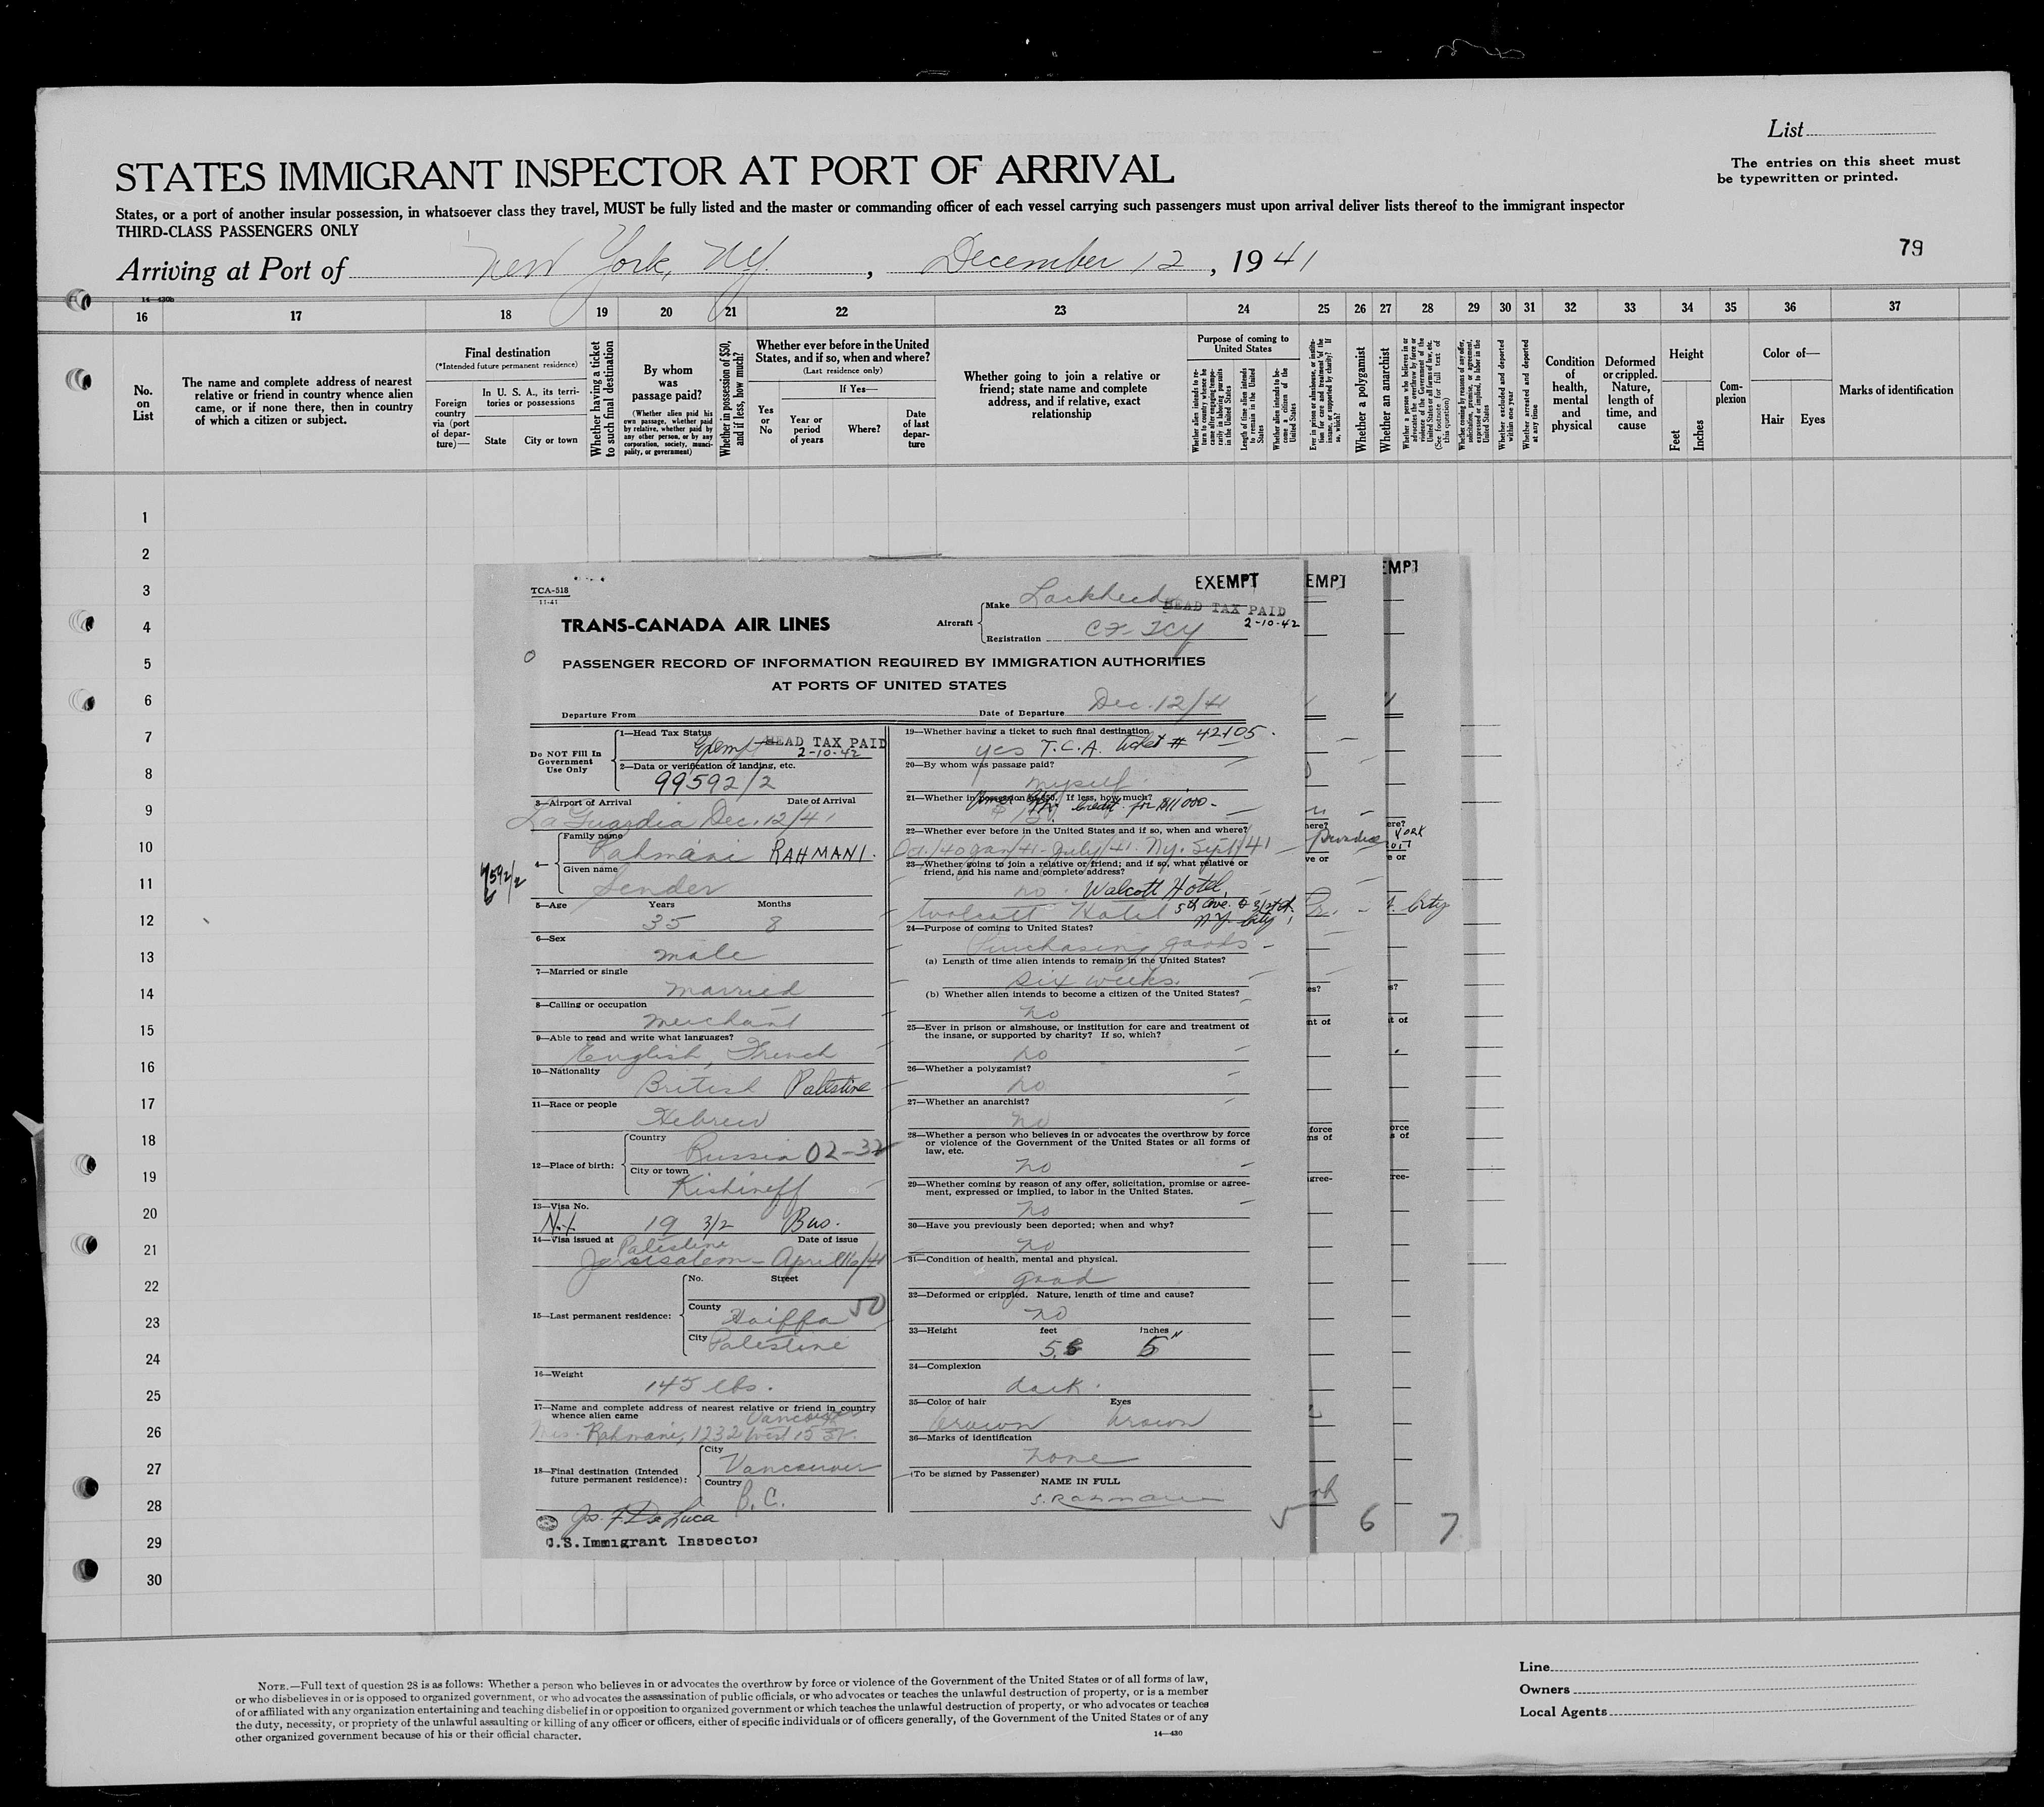 List
The entries on this sheet must
be typewritten or printed.
STATES IMMIGRANT INSPECTOR AT PORT OF ARRIVAL
States, or a port of another insular possession, in whatsoever class they travel, MUST be fully listed and the master or commanding officer of each vessel carrying such passengers must upon arrival deliver lists thereof to the immigrant inspector
THIRD-CLASS PASSENGERS ONLY
79
Arriving at Port of New York, NY. , December 12 , 1941
14-430b
16 17 18 19 20 21 22 23 24 25 26 27 28 29 30 31 32 33 34 35 36 37
No. on List
The name and complete address of nearest relative or friend in country whence alien came, or if none there, then in country of which a citizen or subject.
Final destination
(*Intended future permanent residence)
Foreign country via (port of departure)—
In U. S. A., its territories or possessions
State City or town
Whether having a ticket to such final destination
By whom was passage paid?
(Whether alien paid his own passage, whether paid by relative, whether paid by any other person, or by any corporation, society, municipality, or government)
Whether in possession of $50, and if less, how much?
Whether ever before in the United States, and if so, when and where?
(Last residence only)
Yes or No
If Yes—
Year or period of years
Where?
Date of last departure
Whether going to join a relative or friend; state name and complete address, and if relative, exact relationship
Purpose of coming to United States
Whether alien intends to return to country whence he came after engaging temporarily in laboring pursuits in the United States
Length of time alien intends to remain in the United States
Whether alien intends to become a citizen of the United States
Ever in prison or almshouse, or institution for care and treatment of the insane, or supported by charity? If so, which?
Whether a polygamist
Whether an anarchist
Whether a person who believes in or advocates the overthrow by force or violence of the Government of the United States or all forms of law, etc. (See footnote for full text of this question)
Whether coming by reason of any offer, solicitation, promise, or agreement, expressed or implied, to labor in the United States
Whether excluded and deported within one year
Whether arrested and deported at any time
Condition of health, mental and physical
Deformed or crippled. Nature, length of time, and cause
Height
Feet
Inches
Complexion
Color of—
Hair Eyes
Marks of identification
1
2
3
4
5
6
7
8
9
10
11
12
13
14
15
16
17
18
19
20
21
22
23
24
25
26
27
28
29
30
TCA-518
11-41
EXEMPT
TRANS-CANADA AIR LINES
Aircraft
Make Lockheed
HEAD TAX PAID
2-10-42
Registration CF-TCY
PASSENGER RECORD OF INFORMATION REQUIRED BY IMMIGRATION AUTHORITIES
AT PORTS OF UNITED STATES
Departure From Date of Departure Dec. 12/41
Do NOT Fill In Government Use Only
1—Head Tax Status
Exempt HEAD TAX PAID
2-10-42
2—Data or verification of landing, etc.
99592/2
3—Airport of Arrival Date of Arrival
La Guardia Dec. 12/41
4—
Family name
Rahmani RAHMANI.
Given name
Sender
5—Age Years Months
35 8
6—Sex
male
7—Married or single
married
8—Calling or occupation
merchant
9—Able to read and write what languages?
English, French
10—Nationality
British Palestine
11—Race or people
Hebrew
12—Place of birth:
Country
Russia 02-32
City or town
Kishineff
13—Visa No.
19 3/2 Bus.
14—Visa issued at Date of issue
Palestine
Jerusalem - April 16/41
15—Last permanent residence:
No. Street
County Haiffa 50
City Palestine
16—Weight
145 lbs.
17—Name and complete address of nearest relative or friend in country
whence alien came
Vancouver
Mrs. Rahmani, 1232 West 15 St.
18—Final destination (Intended
future permanent residence):
City
Vancouver
Country
B.C.
Jos. F. De Luca
U.S. Immigrant Inspector
19—Whether having a ticket to such final destination
yes T.C.A. ticket # 42105.
20—By whom was passage paid?
myself
21—Whether in possession of $50. If less, how much?
credit for $11000-
22—Whether ever before in the United States and if so, when and where?
Oct./40 Jan/41 - July/41. Ny. Sept/41
23—Whether going to join a relative or friend; and if so, what relative or
friend, and his name and complete address?
no. Walcott Hotel,
Wolcott Hotel 5th Ave. & 31st St.
N.Y. City
24—Purpose of coming to United States?
Purchasing goods
(a) Length of time alien intends to remain in the United States?
six weeks.
(b) Whether alien intends to become a citizen of the United States?
no
25—Ever in prison or almshouse, or institution for care and treatment of
the insane, or supported by charity? If so, which?
no
26—Whether a polygamist?
no
27—Whether an anarchist?
no
28—Whether a person who believes in or advocates the overthrow by force
or violence of the Government of the United States or all forms of
law, etc.
no
29—Whether coming by reason of any offer, solicitation, promise or agree-
ment, expressed or implied, to labor in the United States.
no
30—Have you previously been deported; when and why?
no
31—Condition of health, mental and physical.
good
32—Deformed or crippled. Nature, length of time and cause?
no
33—Height feet inches
5 5"
34—Complexion
dark.
35—Color of hair Eyes
brown brown
36—Marks of identification
none
(To be signed by Passenger)
NAME IN FULL
S. Rahmani
5 6 7
NOTE.—Full text of question 28 is as follows: Whether a person who believes in or advocates the overthrow by force or violence of the Government of the United States or of all forms of law,
or who disbelieves in or is opposed to organized government, or who advocates the assassination of public officials, or who advocates or teaches the unlawful destruction of property, or is a member
of or affiliated with any organization entertaining and teaching disbelief in or opposition to organized government or which teaches the unlawful destruction of property, or who advocates or teaches
the duty, necessity, or propriety of the unlawful assaulting or killing of any officer or officers, either of specific individuals or of officers generally, of the Government of the United States or of any
other organized government because of his or their official character.
14-430
Line
Owners
Local Agents